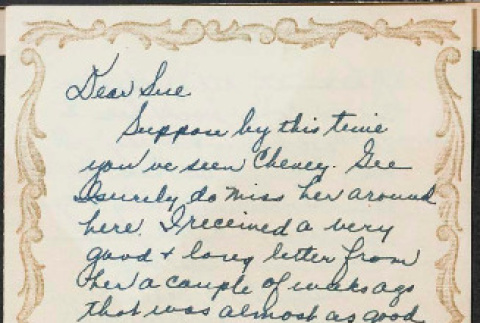 Dear Sue
Suppose by this time
you've seen Chevey. Gee
I surely do miss her around
here. I received a very
good & long letter from
her a couple of weeks ago
that was almost as good